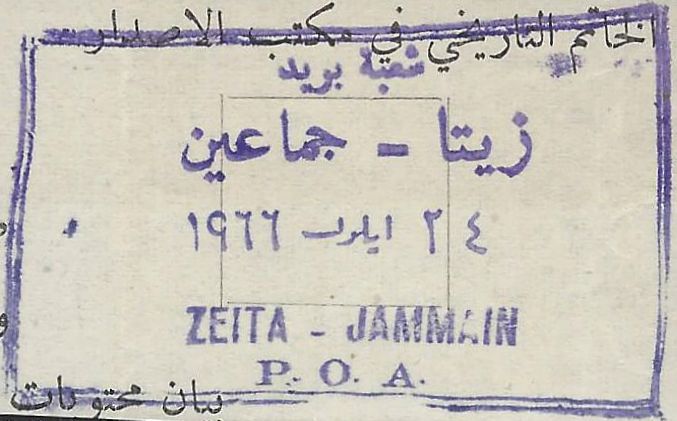 الخاتم التاريخي في مكتب الاصدار
شعبة بريد
زيتا - جماعين
٢٤ ايلول ١٩٦٦
ZEITA - JAMMAIN
P. O. A.
بيان محتويات